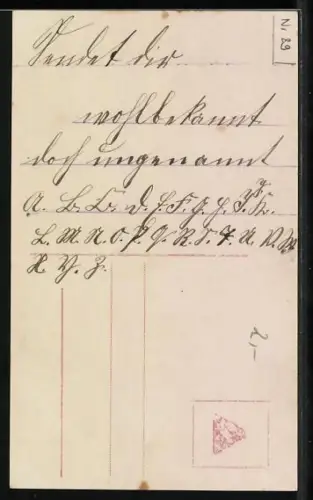 Nr 29
Sendet dir
wohlbekannt
doch ungenannt
A. B. C. D. E. F. G. H. I. J. K.
L. M. N. O. P. Q. R. S. T. U. V. W.
X. Y. Z.
2,-